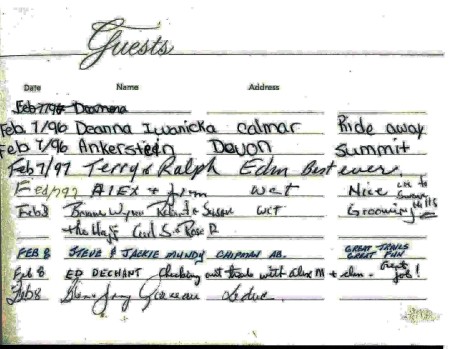 Guests
Date Name Address
Feb 7/96 Deanna
Feb 7/96 Deanna Iwanicka Calmar Ride away
Feb 7/96 Ankerstein Devon Summit
Feb 7/97 Terry & Ralph Edm Best ever.
Feb 7/97 ALEX + Jim Wet Nice
Feb 8 Wynn & Susan Wet Grooming Hills
the Hays Carl S. Rose P.
FEB 8 STEVE & JACKIE MUNDY CHIPMAN AB. GREAT TRAILS GREAT FUN
Feb 8 ED DECHANT Checking out trails with Alex M + Jim - Great job!
Feb 8 Leduc